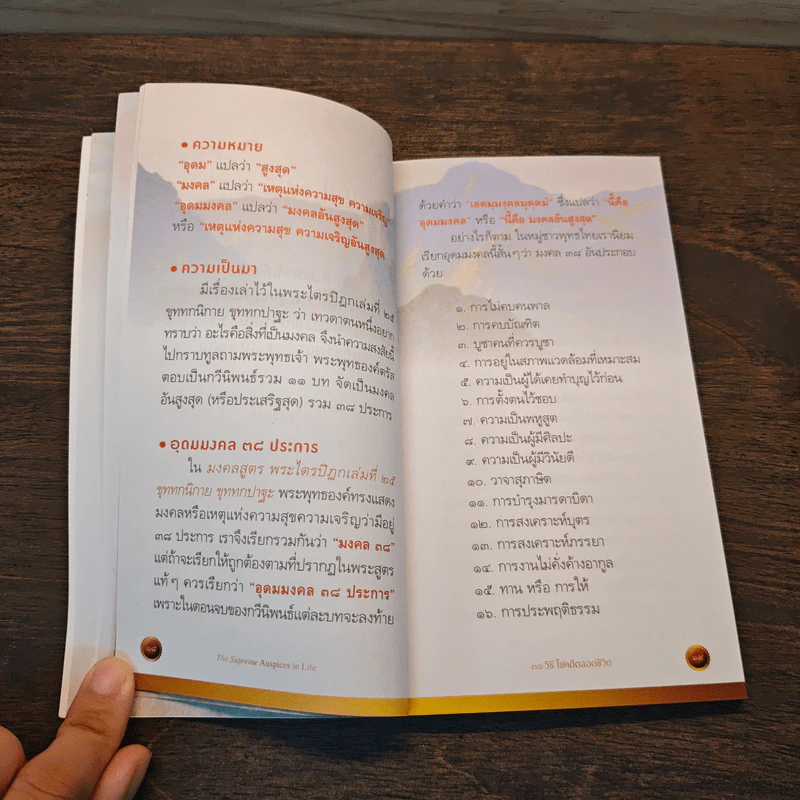 • ความหมาย
"อุดม" แปลว่า "สูงสุด"
"มงคล" แปลว่า "เหตุแห่งความสุข ความเจริญ"
"อุดมมงคล" แปลว่า "มงคลอันสูงสุด"
หรือ "เหตุแห่งความสุข ความเจริญอันสูงสุด"
• ความเป็นมา
มีเรื่องเล่าไว้ในพระไตรปิฎกเล่มที่ ๒๕
ขุททกนิกาย ขุททกปาฐะ ว่า เทวดาตนหนึ่งอยาก
ทราบว่า อะไรคือสิ่งที่เป็นมงคล จึงนำความสงสัยนี้
ไปกราบทูลถามพระพุทธเจ้า พระพุทธองค์ตรัส
ตอบเป็นกวีนิพนธ์รวม ๑๑ บท จัดเป็นมงคล
อันสูงสุด (หรือประเสริฐสุด) รวม ๓๘ ประการ
• อุดมมงคล ๓๘ ประการ
ใน มงคลสูตร พระไตรปิฎกเล่มที่ ๒๕
ขุททกนิกาย ขุททกปาฐะ พระพุทธองค์ทรงแสดง
มงคลหรือเหตุแห่งความสุขความเจริญว่ามีอยู่
๓๘ ประการ เราจึงเรียกรวมกันว่า "มงคล ๓๘"
แต่ถ้าจะเรียกให้ถูกต้องตามที่ปรากฏในพระสูตร
แท้ๆ ควรเรียกว่า "อุดมมงคล ๓๘ ประการ"
เพราะในตอนจบของกวีนิพนธ์แต่ละบทจะลงท้าย
The Supreme Auspices in Life
ด้วยคำว่า "เอตมฺมงฺคลมุตฺตมํ" ซึ่งแปลว่า "นี้คือ
อุดมมงคล" หรือ "นี้คือ มงคลอันสูงสุด"
อย่างไรก็ตาม ในหมู่ชาวพุทธไทยเรานิยม
เรียกอุดมมงคลนี้สั้นๆว่า มงคล ๓๘ อันประกอบ
ด้วย
๑. การไม่คบคนพาล
๒. การคบบัณฑิต
๓. บูชาคนที่ควรบูชา
๔. การอยู่ในสภาพแวดล้อมที่เหมาะสม
๕. ความเป็นผู้ได้เคยทำบุญไว้ก่อน
๖. การตั้งตนไว้ชอบ
๗. ความเป็นพหูสูต
๘. ความเป็นผู้มีศิลปะ
๙. ความเป็นผู้มีวินัยดี
๑๐. วาจาสุภาษิต
๑๑. การบำรุงมารดาบิดา
๑๒. การสงเคราะห์บุตร
๑๓. การสงเคราะห์ภรรยา
๑๔. การงานไม่คั่งค้างอากูล
๑๕. ทาน หรือ การให้
๑๖. การประพฤติธรรม
๓๘ วิธี โชคดีตลอดชีวิต